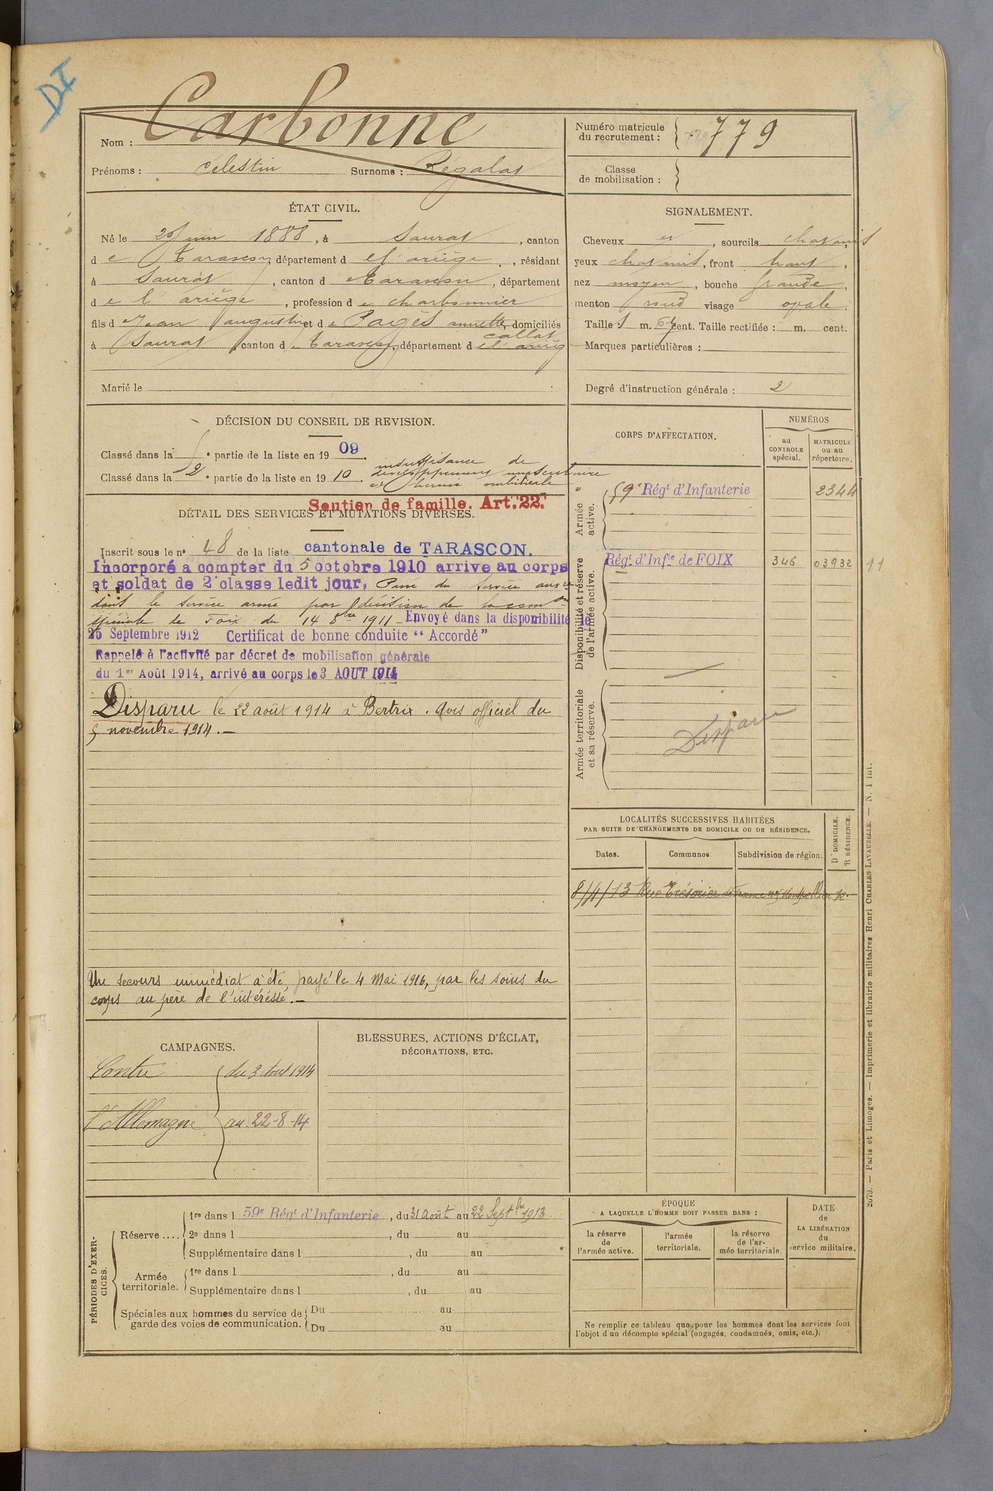 DI
Nom : Carbonne
Prénoms : celestin Surnoms : Regalat
Numéro matricule du recrutement : 779
Classe de mobilisation :
ÉTAT CIVIL.
Né le 1888, à Saurat, canton
d e Tarascon, département d el ariège, résidant
à Saurat, canton d e Tarascon, département
d e l ariège, profession d e charbonnier
fils d e Jean augustin et d e Pagès annette, domiciliés
callat
à Saurat canton d e Tarascon, département d el arieg
Marié le
SIGNALEMENT.
Cheveux et, sourcils chatains
yeux chatains, front haut,
nez moyen, bouche grande,
menton rond visage ovale.
Taille 1 m. cent. Taille rectifiée : m. cent.
Marques particulières :
Degré d'instruction générale : 2
DÉCISION DU CONSEIL DE REVISION.
Classé dans la partie de la liste en 1909.
insuffisance de
Classé dans la 2e partie de la liste en 1910 développement musculaire
et hernie ombilicale
Soutien de famille. Art. 22.
DÉTAIL DES SERVICES ET MUTATIONS DIVERSES.
Inscrit sous le no 48 de la liste cantonale de TARASCON.
Incorporé a compter du 5 octobre 1910 arrive au corps
et soldat de 2e classe ledit jour. du service auxre
dans le service armé par décision de la comon
spéciale de Foix du 14 8bre 1911 - Envoyé dans la disponibilité le
25 Septembre 1912 Certificat de bonne conduite "Accordé"
Rappelé à l'activité par décret de mobilisation générale
du 1er Août 1914, arrivé au corps le 3 AOUT 1914
Disparu le 22 août 1914 à Bertrix. Avis officiel du
5 novembre 1914.-
Un secours immédiat a été payé le 4 Mai 1916, par les soins du
corps au père de l'intéressé.-
CORPS D'AFFECTATION.
NUMÉROS
au CONTROLE spécial.
MATRICULE ou au répertoire.
Armée active.
59e Régt d'Infanterie 2344
Disponibilité et réserve de l'armée active.
Régt d'Infie de FOIX 346 03932 11
Armée territoriale et sa réserve.
Disparu
LOCALITÉS SUCCESSIVES HABITÉES
PAR SUITE DE CHANGEMENTS DE DOMICILE OU DE RÉSIDENCE.
Dates. Communes Subdivision de région. D DOMICILE. R RÉSIDENCE.
8/4/13 Rue Trésorier de France Montpellier R.
CAMPAGNES.
Contre du 3 Aout 1914
l'Allemagne au 22-8-14
BLESSURES, ACTIONS D'ÉCLAT,
DÉCORATIONS, ETC.
PÉRIODES D'EXERCICES.
Réserve....
1re dans l 59e Régt d'Infanterie, du 31 août au 22 Septbre 1913
2e dans l , du au
Supplémentaire dans l , du au
Armée territoriale.
1re dans l , du au
Supplémentaire dans l , du au
Spéciales aux hommes du service de garde des voies de communication.
Du au
Du au
ÉPOQUE
A LAQUELLE L'HOMME DOIT PASSER DANS :
la réserve de l'armée active.
l'armée territoriale.
la réserve de l'armée territoriale.
DATE de LA LIBÉRATION du service militaire.
Ne remplir ce tableau que pour les hommes dont les services font
l'objet d'un décompte spécial (engagés, condamnés, omis, etc.).
2679. — Paris et Limoges. — Imprimerie et librairie militaires Henri CHARLES-LAVAUZELLE. — N. 1 int.